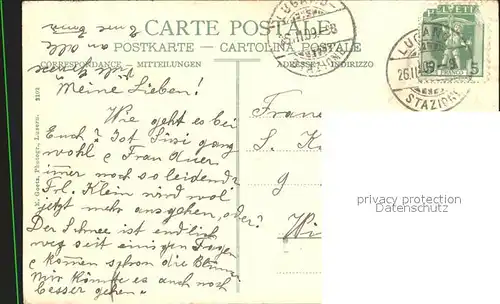 CARTE POSTALE
POSTKARTE - CARTOLINA POSTALE
CORRESPONDANCE - MITTEILUNGEN
ADRESSE - INDIRIZZO
HELVETIA
FRANCO
5
LUGANO
26.II.09.-8
STAZIONE
LUGANO
26.II.09.-8
STAZIONE
an alle
Eure
Meine Lieben!
Wie geht es bei
Euch? Ist Susi ganz
wohl & Frau
immer noch so leidend?
Frl. Klein wird wol
jetzt mehr ausgehen, oder?
Der Schnee ist endlich
weg seit einigen Tagen
& kommen schon die Blumen
Mir könnte es auch noch
besser gehen.
Fran
S. K
g
Wi
privacy protection
Datenschutz
E. Goetz, Photogr., Luzern.